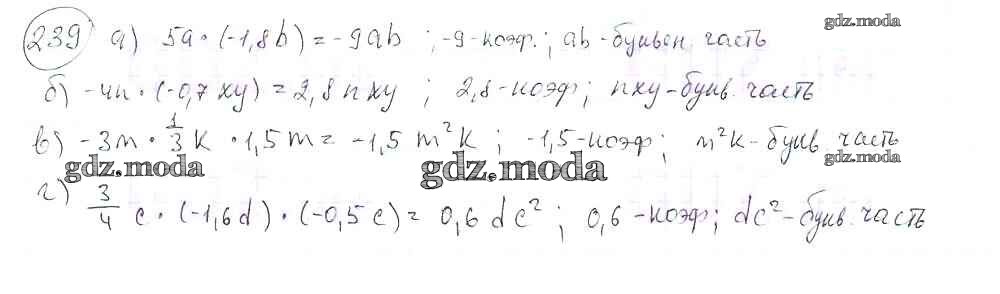 gdz.moda
239 а) 5a · (-1,8b) = -9ab ; -9-коэф.; ab-буквен. часть
б) -4n · (-0,7xy) = 2,8nxy ; 2,8-коэф; nxy-букв. часть
gdz.moda
в) -3m · 1/3 k · 1,5m = -1,5 m²k ; -1,5-коэф; m²k-букв. часть
gdz.moda gdz.moda gdz.moda
г) 3/4 c · (-1,6d) · (-0,5c) = 0,6 dc² ; 0,6-коэф; dc²-букв. часть
gdz.moda